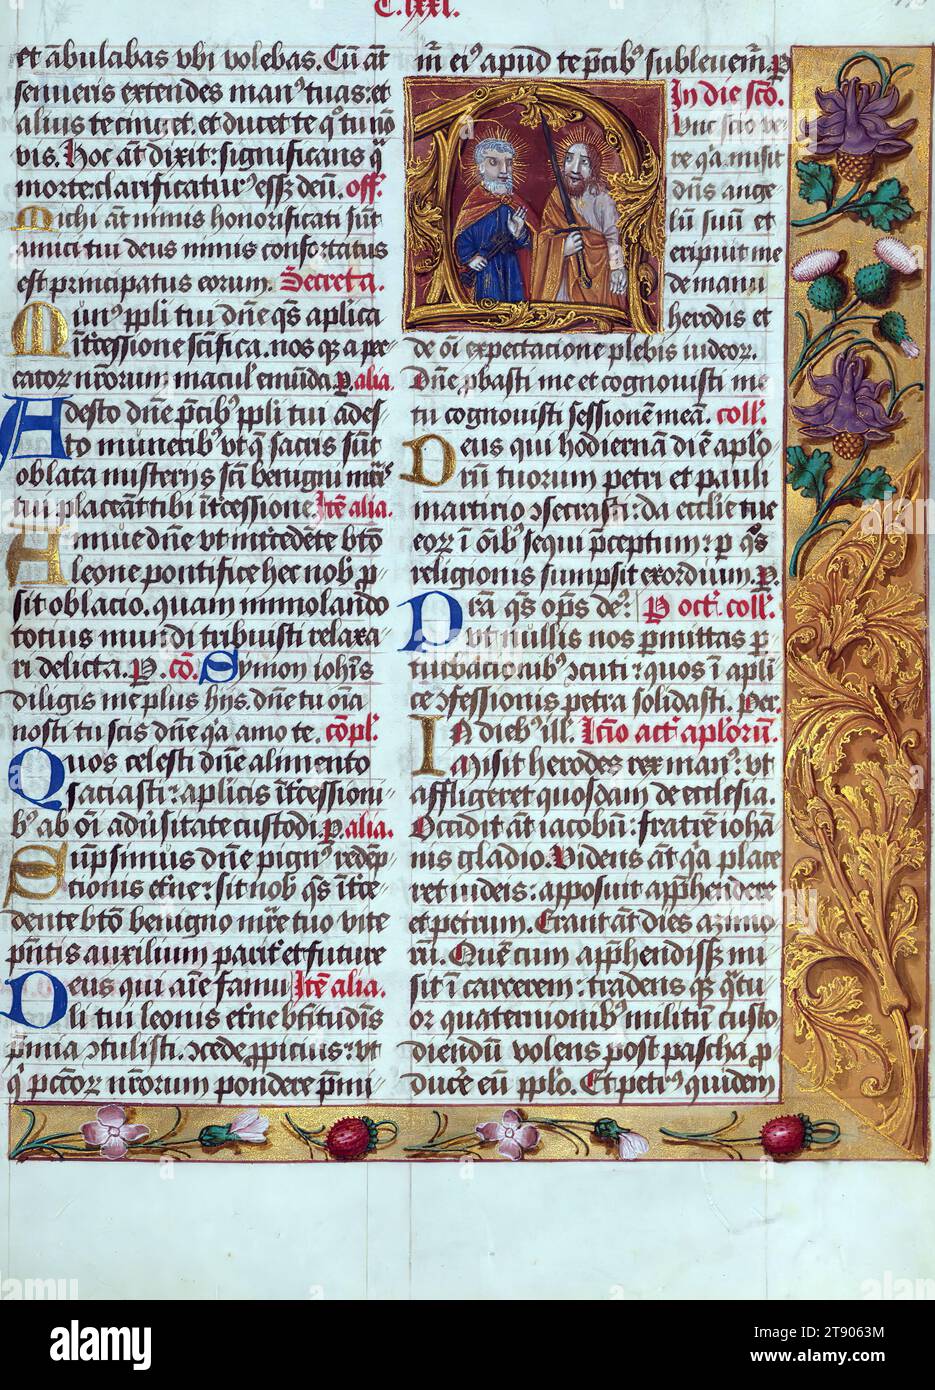 C. lxxi.
et ābulabas vbi volebas. Cū āt
senueris extendes man⁹ tuas: et
alius te cinget. et ducet te qͦ tu nō
vis. Hoc āt dixit: significans q̄
morte: clarificatur⁹ ess; deū. off.
Michi āt nimis honorificati sūt
amici tui deus nimis confortatus
est principatus eorum. Secreta.
Mun⁹ ppli tui dn̄e q̄s aplica
ītcessione scīfica. nos q; a pec
cator nr̄orum macul' emūda. P alia.
Adesto dn̄e p̄cib⁹ ppli tui ades
to munerib⁹ vt q̄ sacris sūt
oblata misteriis scī benigni mr̄is
tui placeāt tibi ītcessione. Itē alia.
Annue dn̄e vt intercedēte btō
leone pontifice hec nob p̄
sit oblacio. quam immolando
totius mundi tribuisti relaxa
ri delicta. P. cō. Symon iohīs
diligis me plus hijs. dn̄e tu oīa
nosti tu scis dn̄e qͣa amo te. cōpl.
Quos celesti dn̄e alimento
saciasti: aplicis ītcessioni
b⁹ ab oī adūsitate custodi. P alia.
Sūpsimus dn̄e pign⁹ redēp
tionis etn̄e: sit nob q̄s ītce
dente btō benigno mr̄e tuo vite
p̄ntis auxilium parit' et future
Deus qui aīe famu Itē alia.
li tui leonis etn̄e btitudīs
p̄mia ꝯtulisti. ꝯcede ꝓpicius: vt
q̄ pccōr nr̄orum pondere p̄mi
m̄r ei⁹ apud te p̄cib⁹ subleuem̄. P
In die scō.
Nunc scio ve
re qͣa misit
dn̄s ange
lū suū et
eripuit me
de manu
herodis et
de oī expectacione plebis iudeor.
Dn̄e pbasti me et cognouisti me
tu cognouisti sessionē meā. coll.
Deus qui hodiernā diē aplo
rū tuorum petri et pauli
martirio ꝯsecrasti: da ecclie tue
eor ī oīb⁹ sequi p̄ceptum: p q̄s
religionis sumpsit exordium. P.
Prā q̄s op̄s de⁹: P oct. coll.
vt nullis nos pmittas p
turbacionib⁹ ꝯcuti: quos ī apli
ce ꝯfessionis petra solidasti. Per.
In dieb⁹ ill. Lc̄io act. aplorū.
Misit herodes rex man⁹: vt
affligeret quosdam de ecclesia.
Occidit āt iacobū: fratrē iohan
nis gladio. Videns āt qͣa place
ret iudeis: apposuit app̄hendere
et petrum. Erant āt dies azimo
rū. Quē cum app̄hendiss; mi
sit ī carcerem: tradens q̄ttu
or quaternionib⁹ militū custo
diendū volens post pascha p
ducere eū pplo. Et petr⁹ quidem
alamy
alamy
Image ID: 2T9063M
www.alamy.com